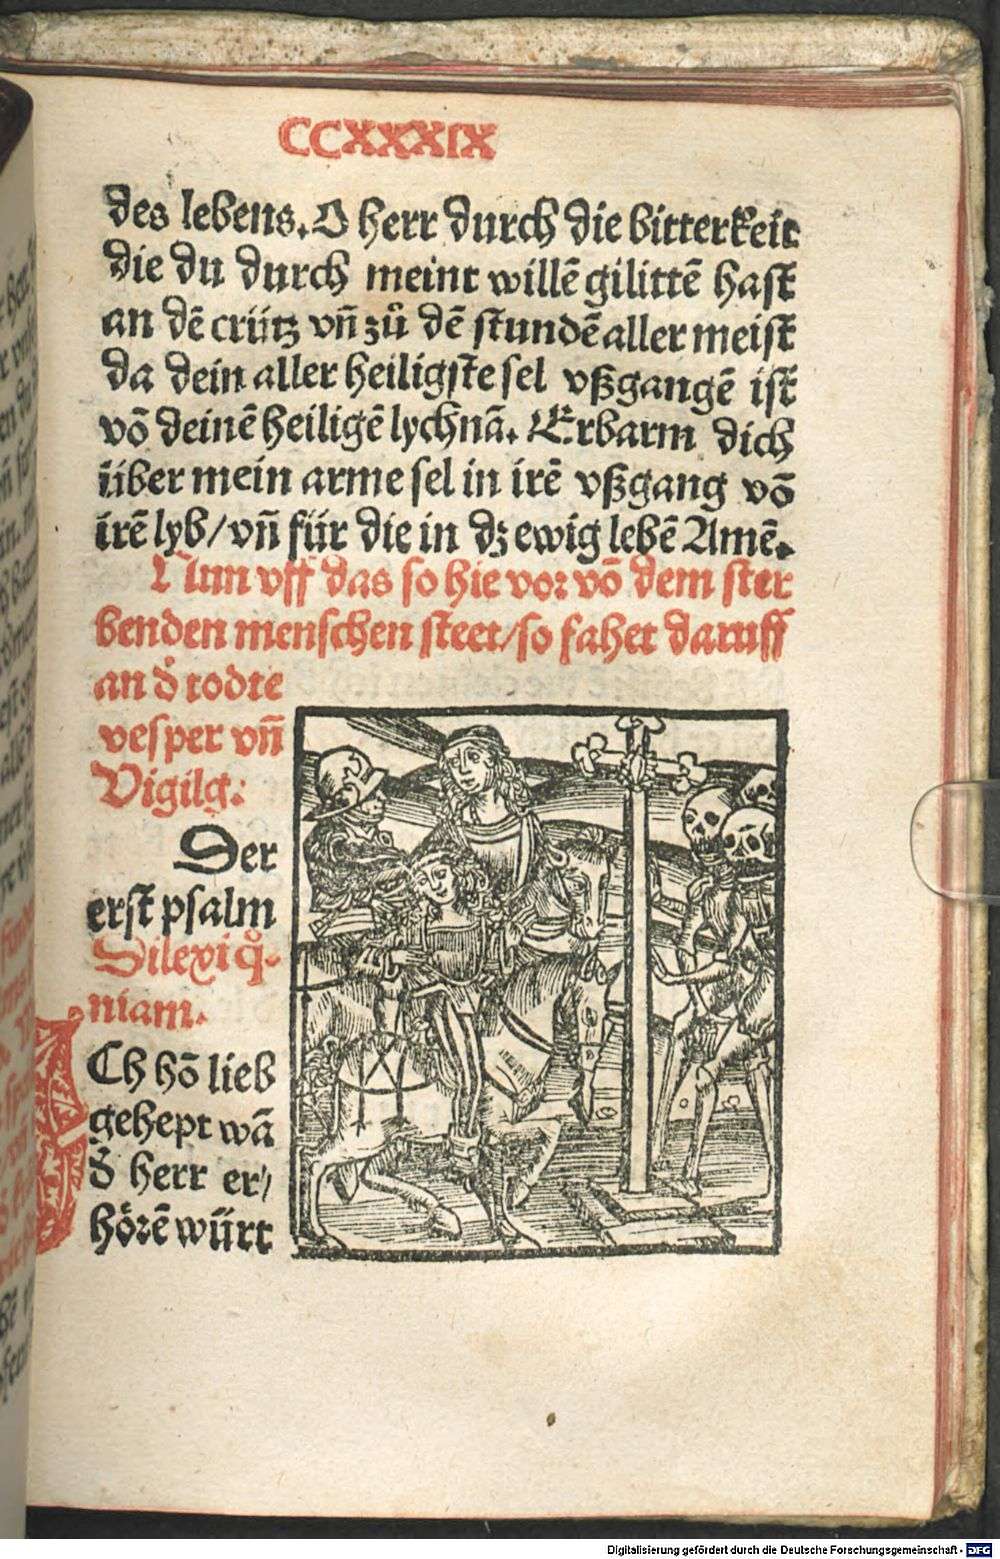 CCXXXIX
des lebens. O herr durch die bitterkeit
die du durch meint willē gilittē hast
an dē crütz vn̄ zů dē stundē aller meist
da dein aller heiligste sel vßgangē ist
vō deinē heiligē lychnā. Erbarm dich
über mein arme sel in irē vßgang vō
irē lyb/vn̄ für die in dz ewig lebē Amē.
Nun vff das so hie vor vō dem ster
benden menschen steet/so fahet daruff
an d̓ todte
vesper vn̄
Vigilg:
Der
erst psalm
Dilexi qͦ
niam.
ICh hō lieb
gehept wā
d̓ herr er/
hörē würt
Digitalisierung gefördert durch die Deutsche Forschungsgemeinschaft - DFG